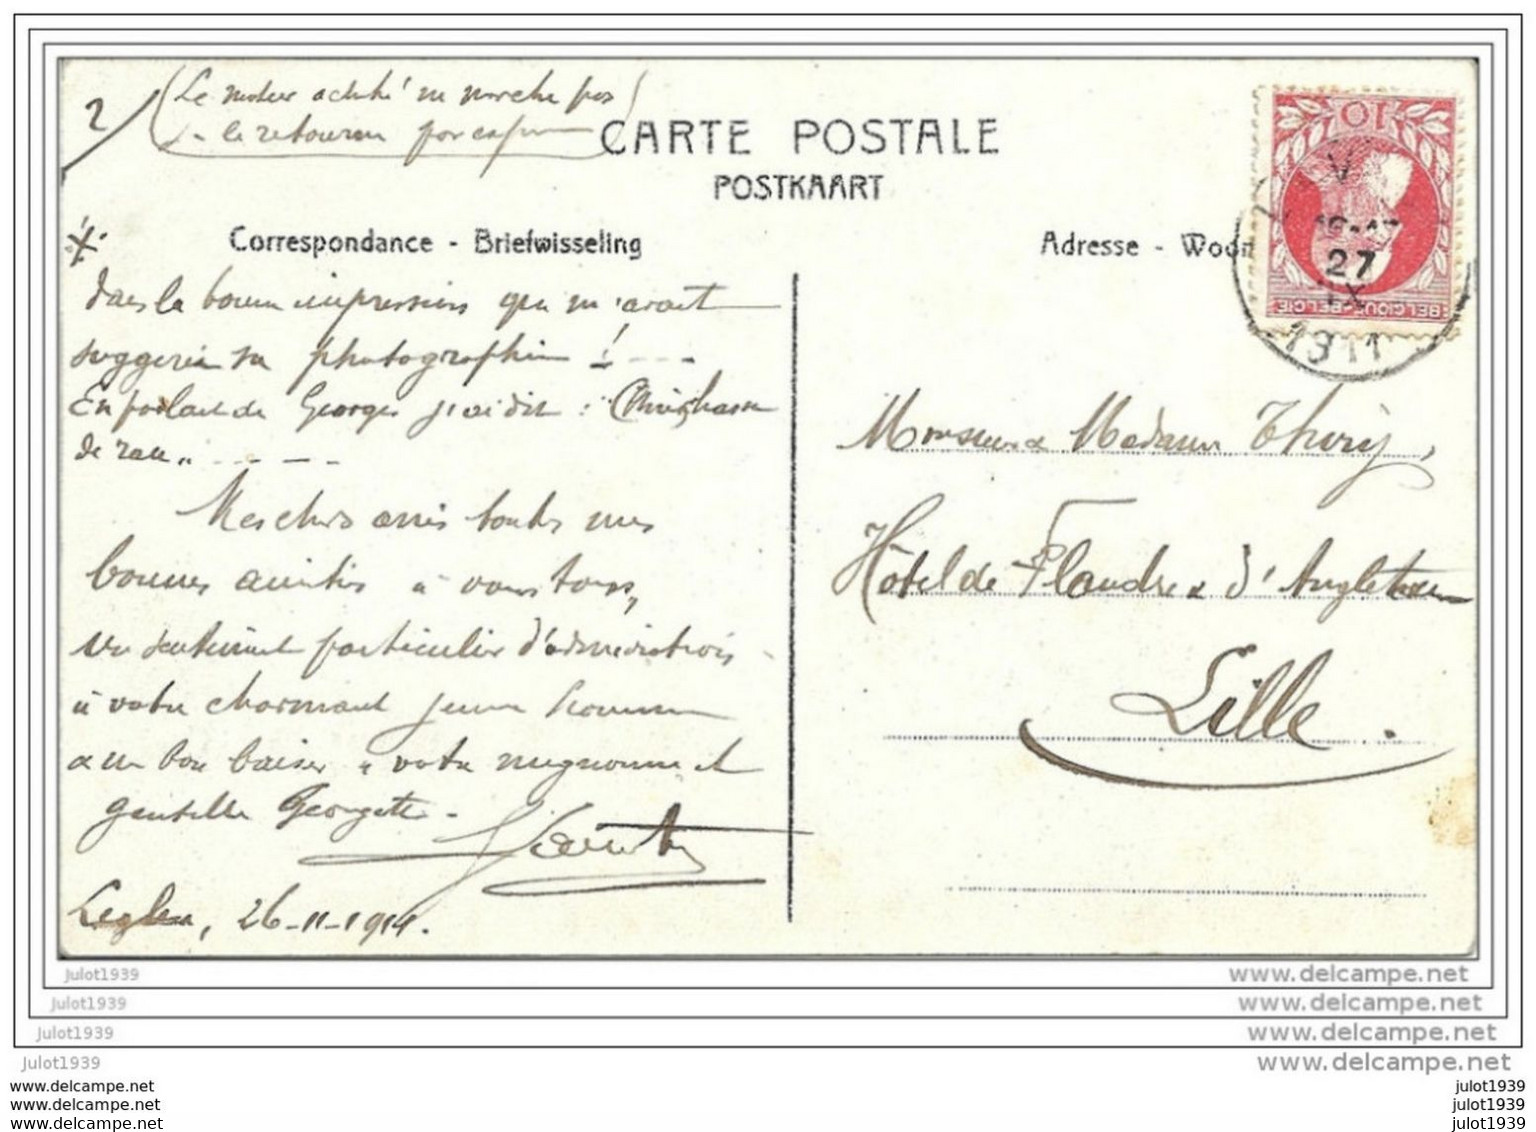 2
(Le moteur acheté ne marche pas)
le retourner par
CARTE POSTALE
POSTKAART
Correspondance - Briefwisseling
Adresse - Woon
BELGIQUE BELGIE
10
16-17
27
IX
1911
dans la bonne impression que m'avait
suggerée sa photographie ! - - -
En parlant de Georges j'ai dit :
de - - - -
Mes chers amis toutes mes
bonnes amitiés à vous tous,
un sentiment particulier d'admiration
à votre charmant jeune homme
& un bon baiser à votre mignonne et
gentille Georgette.
26-11-1911.
Monsieur & Madame Thiry,
Hôtel de Flandre & d'Angleterre
Lille.
julot1939
www.delcampe.net
julot1939
www.delcampe.net
julot1939
www.delcampe.net
julot1939
www.delcampe.net
www.delcampe.net
julot1939
www.delcampe.net
julot1939
www.delcampe.net
julot1939